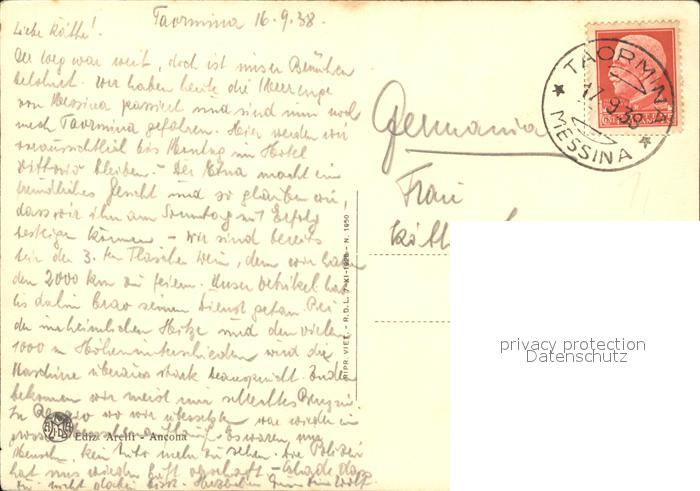 Taormina 16.9.38.
Liebe Käthe!
Der Weg war weit, doch ist unser Bemühen
belohnt. Wir haben heute die Meerenge
von Messina passiert und sind nun noch
nach Taormina gefahren. Hier werden wir
voraussichtlich bis Montag im Hotel
Vittoria bleiben. – Der Etna macht ein
freundliches Gesicht und so glauben wir,
dass wir ihn am Sonntag mit Erfolg
besteigen können – Wir sind bereits
bei der 3. ten Flasche Wein, denn wir haben
den 2000 km zu feiern. Unser Vehikel hat
bis dahin brav seinen Dienst getan. Bei
der unheimlichen Hitze und den vielen
1000 m Höhenunterschieden wird die
Maschine überaus stark beansprucht.
bekommen wir meist nur schlechtes Benzin.
wo wir übersetzten war wieder ein
grosser Es waren nur
Mensch, kein Auto mehr zu sehen. Die Polizei
hat uns wieder Luft verschafft – Schade, dass
Du nicht dabei bist. Herzlichen Gruss Dein Wolf
Ediz. Arelli - Ancona
RIPR. VIET. - R.D.L. 7-XI-1925 - N. 1950
TAORMINA
17.9.38
MESSINA
Germania
Frau
Käth
privacy protection
Datenschutz